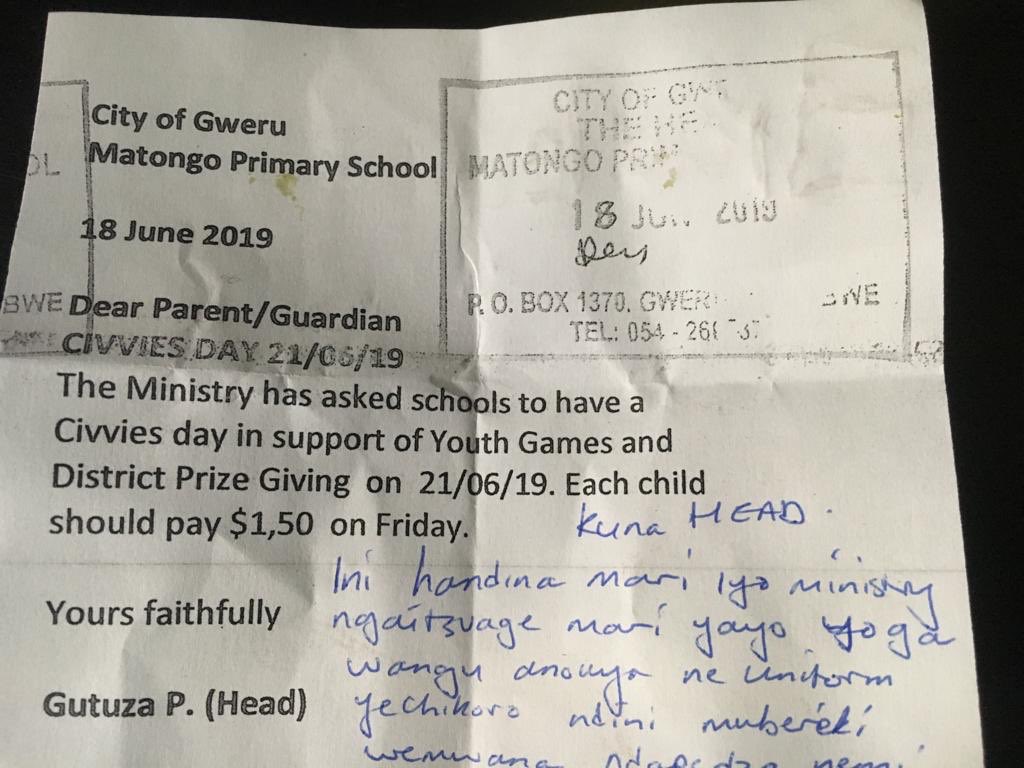 City of Gweru
Matongo Primary School
18 June 2019
CITY OF
THE
MATONGO
18 2019
P.O. BOX 1370. GWER
TEL: 054 -
Dear Parent/Guardian
CIVVIES DAY 21/06/19
The Ministry has asked schools to have a
Civvies day in support of Youth Games and
District Prize Giving on 21/06/19. Each child
should pay $1,50 on Friday.
Yours faithfully
Gutuza P. (Head)
Kuna HEAD.
Ini handina mari iyo ministry
ngaitsvage mari yayo yoga
wangu anouya ne uniform
yechikoro ndini mubereki
wemwana ndapedza